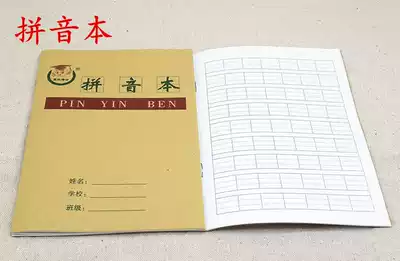 拼音本
拼音本
PIN YIN BEN
姓名：
学校：
班级：